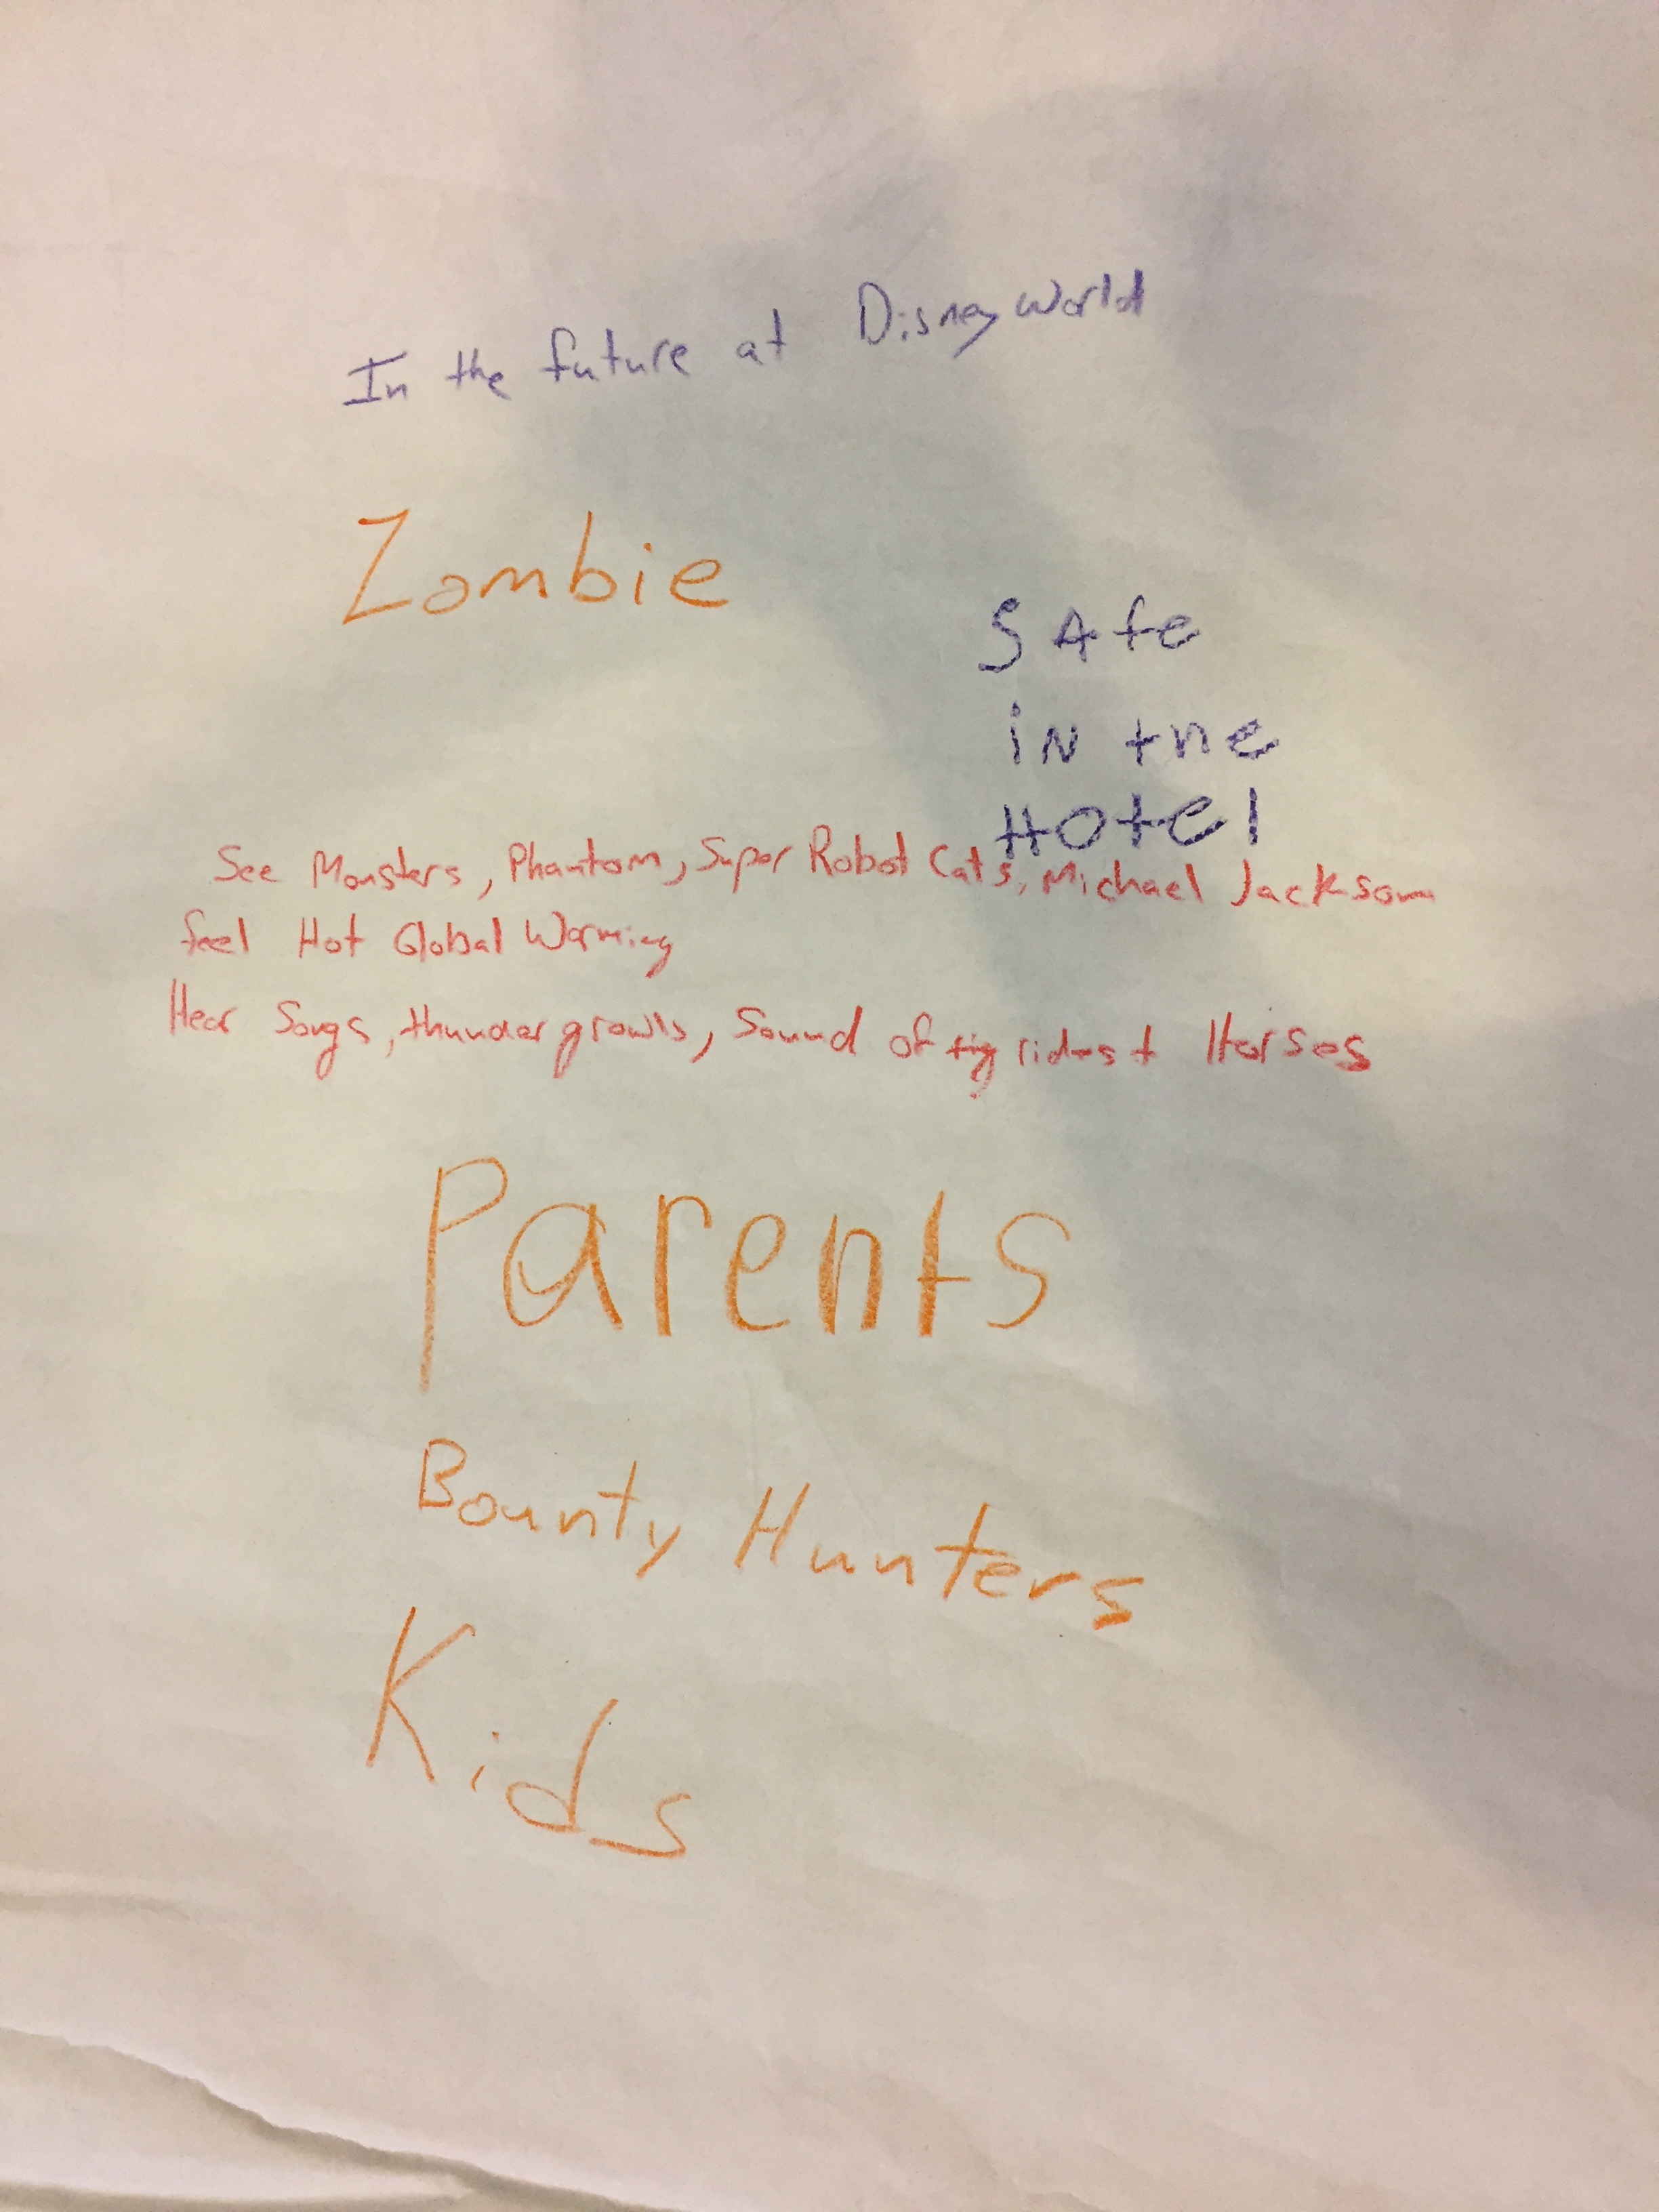 In the future at Disney World
Zombie
SAfe
iN the
HOtel
See Monsters, Phantom, Super Robot Cats, Michael Jackson
feel Hot Global Warming
Hear Songs, thunder growls, Sound of rides + Horses
Parents
Bounty Hunters
Kids